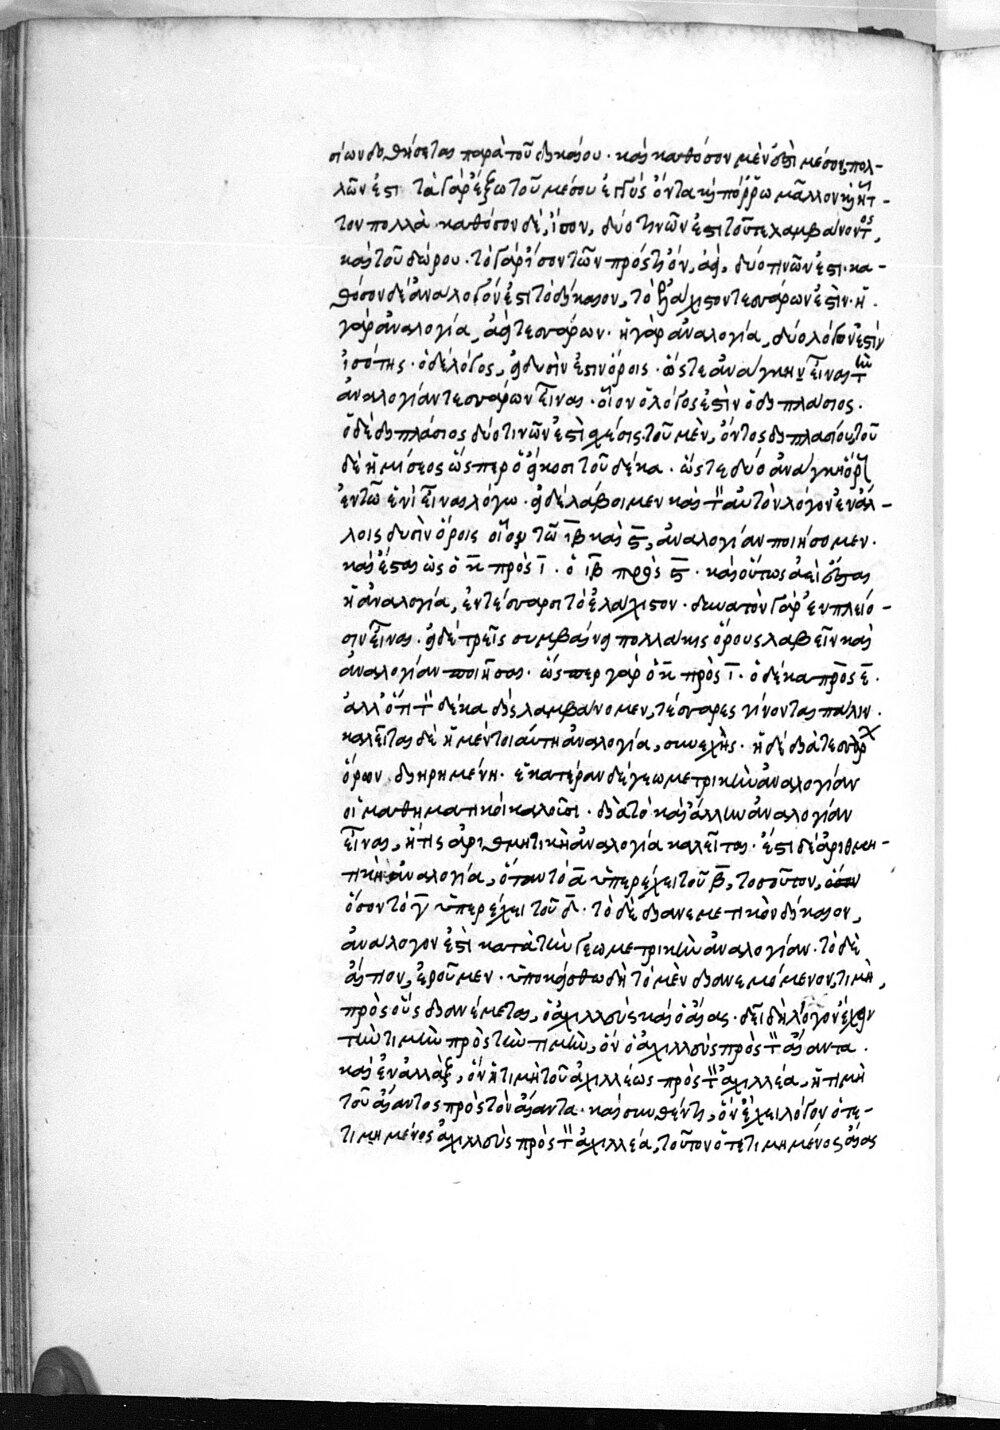 σίων δοθήσεται παρὰ τοῦ δικαίου· καὶ καθόσον μὲν ἐστὶ μέσον, πολ-
λῶν ἐστι τὰ γὰρ ἔξω τοῦ μέσου ἐγγύς ὄντα καὶ πόρρω μᾶλλον καὶ ἧτ-
τον πολλὰ· καθόσον δὲ, ἴσον, δύο τινῶν ἐστι τοῦ τε λαμβάνοντος,
καὶ τοῦ δώρου· τὸ γὰρ ἴσον τῶν πρός τι ὄν, ἀεὶ, δύο τινῶν ἐστι· κα-
θόσον δὲ ἀνάλογόν ἐστι τὸ δίκαιον, τὸ ἐλάχιστον τεσσάρων ἐστὶν· ἡ
γὰρ ἀναλογία, ἀεὶ τεσσάρων· ἡ γὰρ ἀναλογία, δύο λόγων ἐστὶν
ἰσότης· ὁ δὲ λόγος, ἐν δυσὶν ἐστιν ὅροις· ὥστε ἀνάγκην εἶναι τὴν
ἀναλογίαν τεσσάρων εἶναι· οἷον ὁ λόγος ἐστὶν ὁ διπλάσιος·
ὁ δὲ διπλάσιος δύο τινῶν ἐστὶ σχέσις τοῦ μὲν, ὄντος διπλασίου, τοῦ
δὲ ἡμίσεος ὥσπερ ὁ εἴκοσι τοῦ δέκα· ὥστε δύο ἀνάγκη ὅροι
ἐν τῶ ἑνὶ εἶναι λόγω· εἰ δὲ λάβοιμεν καὶ τὸν αὐτὸν λόγον ἐν ἄλ-
λοις δυσὶν ὅροις οἷον τῶ ιβ καὶ ϛ, ἀναλογίαν ποιήσομεν·
καὶ ἔσται ὡς ὁ κ πρὸς ι· ὁ ιβ πρὸς ϛ· καὶ οὕτως ἀεὶ ἔσται
ἡ ἀναλογία, ἐν τέσσαρσι τὸ ἐλάχιστον· δυνατὸν γὰρ ἐν πλείο-
σιν εἶναι· εἰ δὲ τρεῖς συμβαίνει πολλάκις ὅρους λαβεῖν καὶ
ἀναλογίαν ποιῆσαι· ὥσπερ γὰρ ὁ κ πρὸς ι· ὁ δέκα πρὸς ε·
ἀλλ' ὅτι τὸν δέκα δὶς λαμβάνομεν, τέσσαρες γίνονται πάλιν·
καλεῖται δὲ ἡ μέντοι αὕτη ἀναλογία, συνεχὴς· ἡ δὲ διὰ τεσσάρων
ὅρων, διῃρημένη· ἑκατέραν δὲ γεωμετρικὴν ἀναλογίαν
οἱ μαθηματικοὶ καλοῦσι· διὰ τὸ καὶ ἄλλην ἀναλογίαν
εἶναι, ἥτις ἀριθμητικὴ ἀναλογία καλεῖται· ἔστι δὲ ἀριθμη-
τικὴ ἀναλογία, ὅταν τὸ α ὑπερέχει τοῦ β, τοσοῦτον,
ὅσον τὸ γ ὑπερέχει τοῦ δ· τὸ δὲ διανεμετικὸν δίκαιον,
ἀνάλογον ἐστὶ κατὰ τὴν γεωμετρικὴν ἀναλογίαν· τὸ δὲ
αἴτιον, ἐροῦμεν· ὑποκείσθω δὴ τὸ μὲν διανεμόμενον, τιμὴ,
πρὸς οὓς διανέμεται, ὁ ἀχιλλεὺς καὶ ὁ αἴας· δεῖ δὴ λόγον ἔχειν
τὴν τιμὴν πρὸς τὴν τιμὴν, ὃν ὁ ἀχιλλεὺς πρὸς τὸν αἴαντα·
καὶ ἐναλλὰξ, ὃν ἡ τιμὴ τοῦ ἀχιλλέως πρὸς τὸν ἀχιλλέα, ἡ τιμὴ
τοῦ αἴαντος πρὸς τὸν αἴαντα· καὶ συνθέντι, ὃν ἔχει λόγον ὁ τε-
τιμημένος ἀχιλλεὺς πρὸς τὸν ἀχιλλέα, τοῦτον ὁ τετιμημένος αἴας